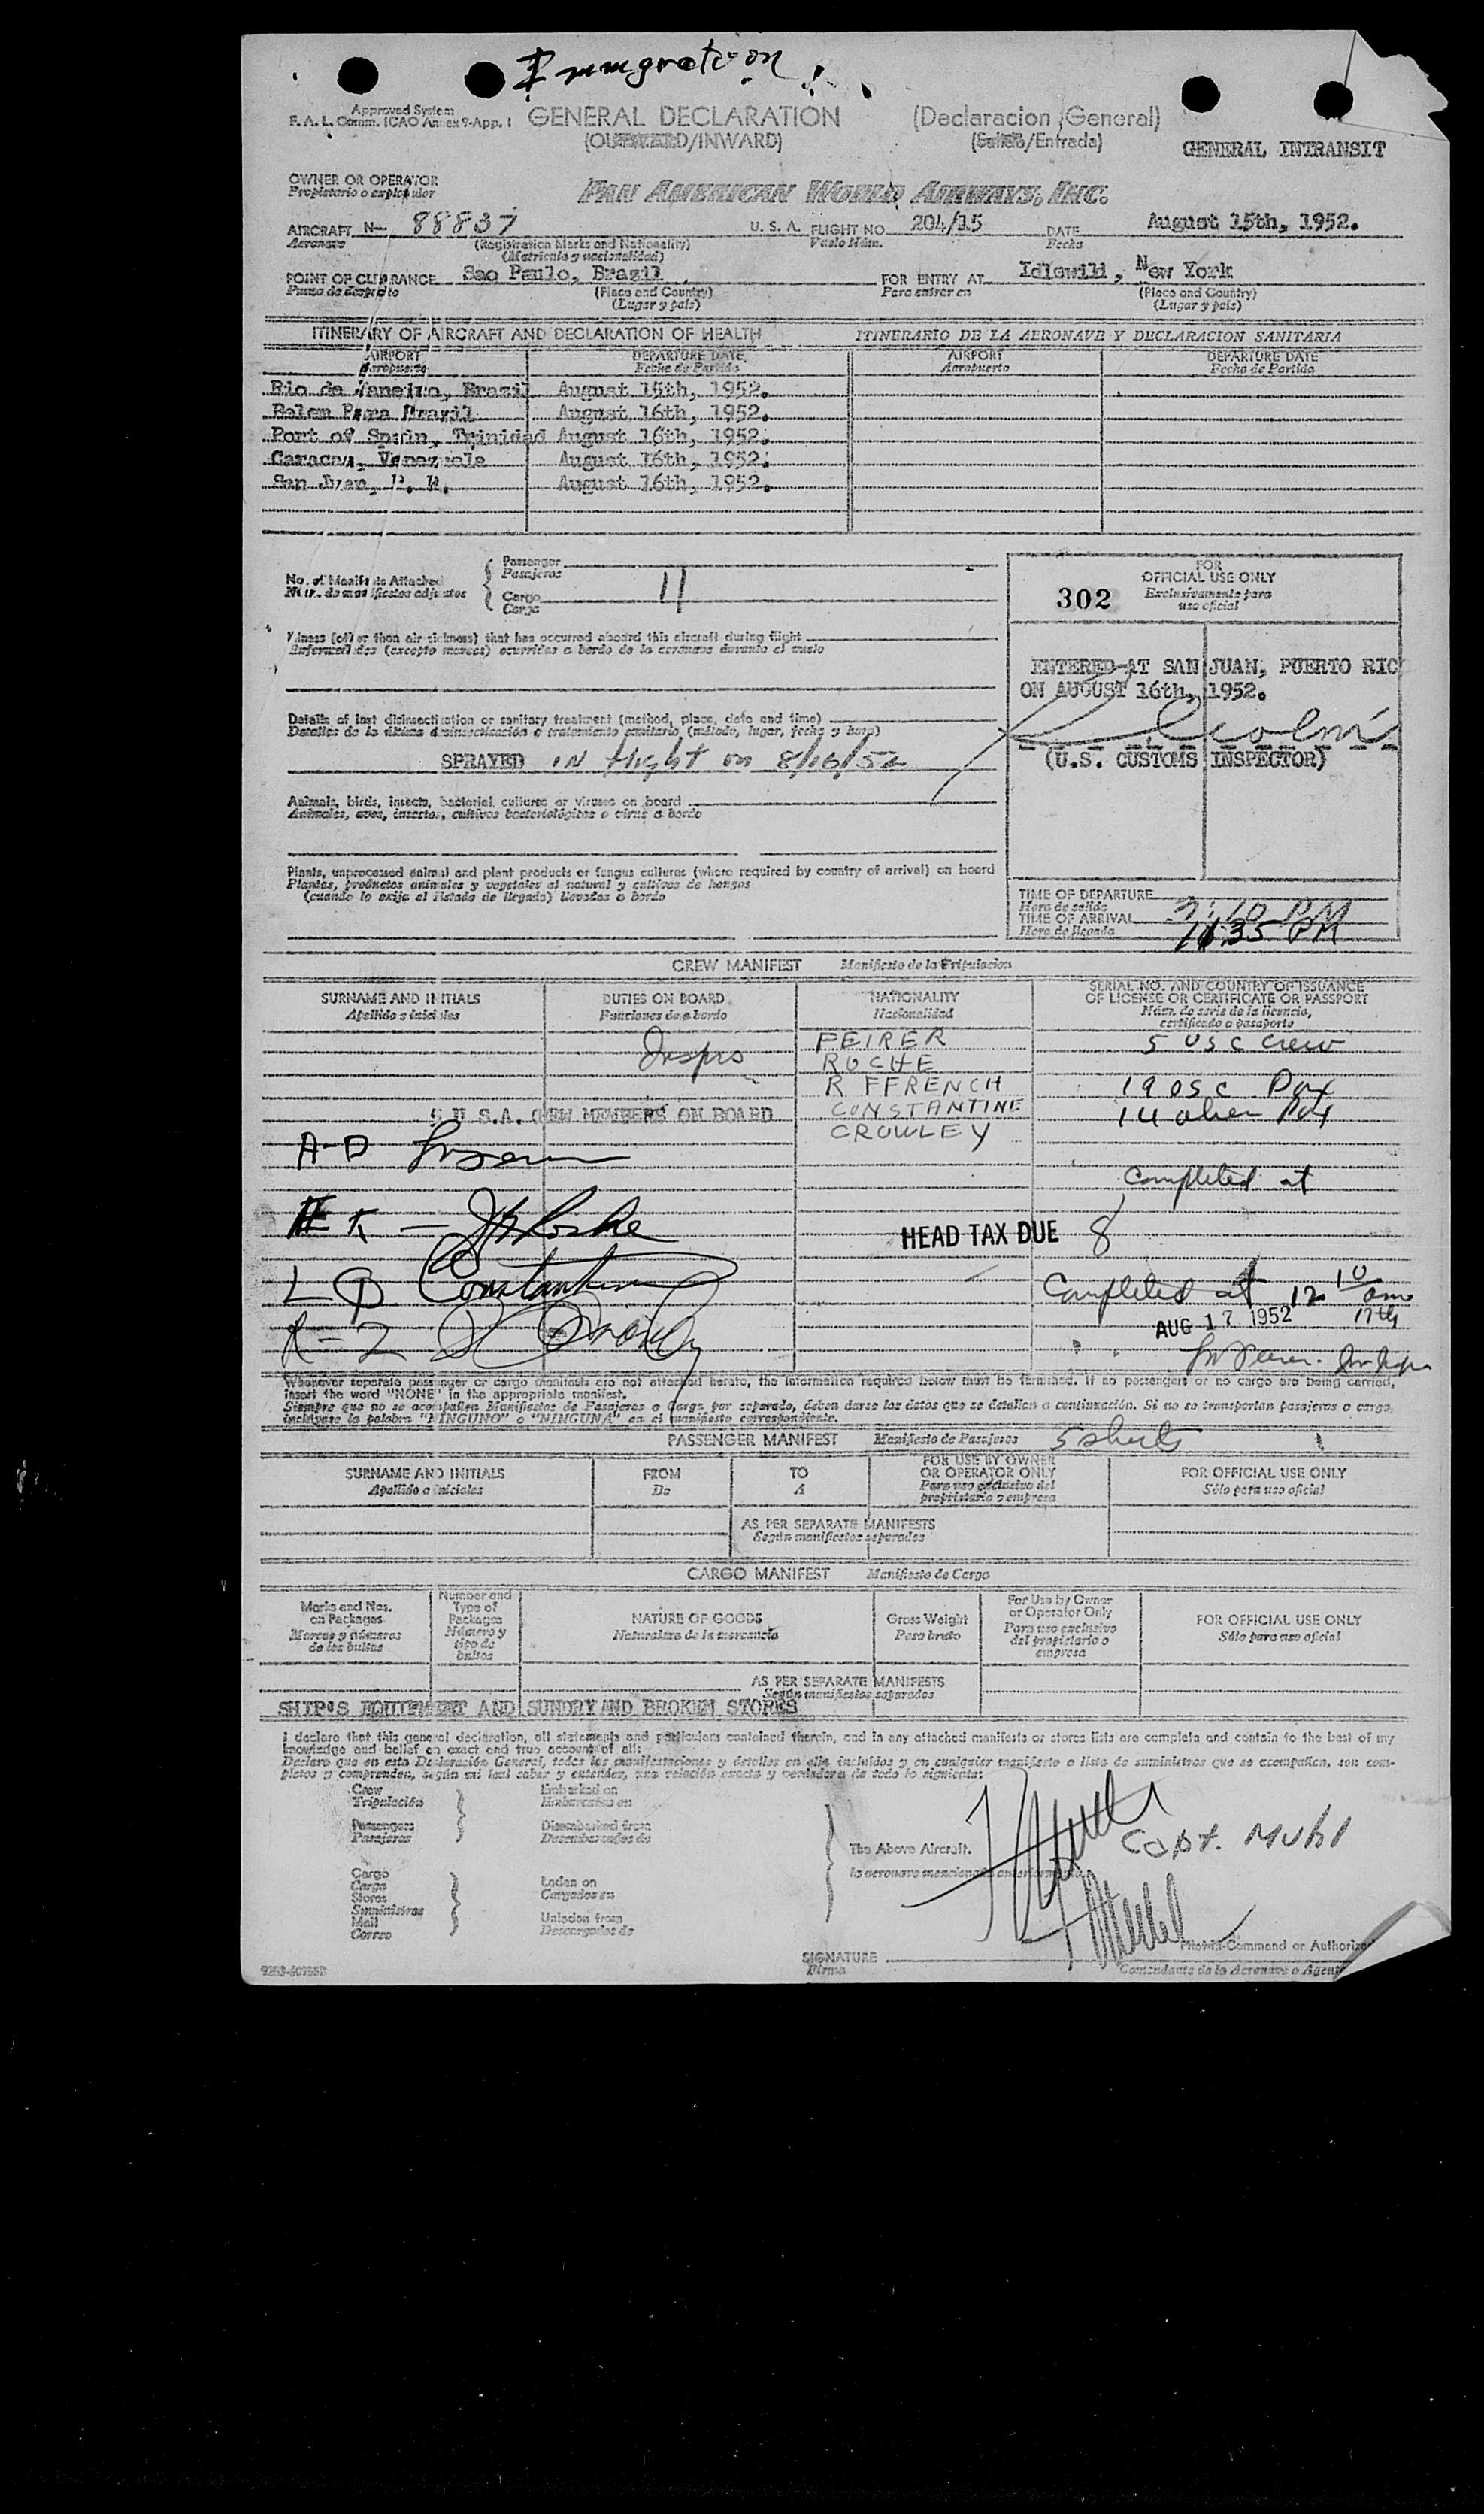 Immigration
Approved System
F. A. L. Comm. ICAO Annex 9-App. 1
GENERAL DECLARATION (Declaracion General)
(OUTWARD/INWARD) (Salida/Entrada)
GENERAL INTRANSIT
OWNER OR OPERATOR
Propietario o explotador
PAN AMERICAN WORLD AIRWAYS, INC.
AIRCRAFT N- 88837 U. S. A. FLIGHT NO. 204/15 DATE August 15th, 1952.
Aeronave (Registration Marks and Nationality) Vuelo Núm. Fecha
(Matricula y nacionalidad)
POINT OF CLEARANCE Sao Paulo, Brazil FOR ENTRY AT Idlewild, New York
Punto de despacho (Place and Country) Para entrar en (Place and Country)
(Lugar y país) (Lugar y país)
ITINERARY OF AIRCRAFT AND DECLARATION OF HEALTH ITINERARIO DE LA AERONAVE Y DECLARACION SANITARIA
AIRPORT DEPARTURE DATE AIRPORT DEPARTURE DATE
Aeropuerto Fecha de Partida Aeropuerto Fecha de Partida
Rio de Janeiro, Brazil August 15th, 1952.
Belem Para Brazil August 16th, 1952.
Port of Spain, Trinidad August 16th, 1952.
Caracas, Venezuela August 16th, 1952.
San Juan, P. R. August 16th, 1952.
No. of Manifests Attached
Núm. de manifiestos adjuntos
Passenger
Pasajeros
Cargo
Carga
11
FOR
OFFICIAL USE ONLY
Exclusivamente para
uso oficial
302
Illness (other than air sickness) that has occurred aboard this aircraft during flight
Enfermedades (excepto mareos) ocurridas a bordo de la aeronave durante el vuelo
ENTERED AT SAN JUAN, PUERTO RIC
ON AUGUST 16th, 1952.
(U.S. CUSTOMS INSPECTOR)
Details of last disinsectization or sanitary treatment (method, place, date and time)
Detalles de la última desinsectización o tratamiento sanitario (método, lugar, fecha y hora)
SPRAYED in flight on 8/16/52
Animals, birds, insects, bacterial cultures or viruses on board
Animales, aves, insectos, cultivos bacteriológicos o virus a bordo
Plants, unprocessed animal and plant products or fungus cultures (where required by country of arrival) on board
Plantas, productos animales y vegetales al natural y cultivos de hongos
(cuando lo exija el Estado de llegada) llevados a bordo
TIME OF DEPARTURE
Hora de salida
TIME OF ARRIVAL 11:35 PM
Hora de llegada
CREW MANIFEST Manifiesto de la Tripulacion
SURNAME AND INITIALS DUTIES ON BOARD NATIONALITY SERIAL NO. AND COUNTRY OF ISSUANCE
OF LICENSE OR CERTIFICATE OR PASSPORT
Apellido e iniciales Funciones de a bordo Nacionalidad Núm. de serie de la licencia,
certificado o pasaporte
FEIRER 5 USC Crew
Inspro ROCHE
R FFRENCH 19 USC Pax
5 U S.A. CREW MEMBERS ON BOARD CONSTANTINE 14 alien Pax
CROWLEY
A-D
Completed at
HEAD TAX DUE 8
L Constantine
Completed at 12 10 am
AUG 17 1952 17th
Whenever separate passenger or cargo manifests are not attached hereto, the information required below must be furnished. If no passengers or no cargo are being carried,
insert the word "NONE" in the appropriate manifest.
Siempre que no se acompañen Manifiestos de Pasajeros o Carga por separado, deben darse los datos que se detallan a continuación. Si no se transportan pasajeros o carga,
inclúyase la palabra "NINGUNO" o "NINGUNA" en el manifiesto correspondiente.
PASSENGER MANIFEST Manifiesto de Pasajeros 5 sheets
SURNAME AND INITIALS FROM TO FOR USE BY OWNER
OR OPERATOR ONLY FOR OFFICIAL USE ONLY
Apellido e iniciales De A Para uso exclusivo del
propietario o empresa Sólo para uso oficial
AS PER SEPARATE MANIFESTS
Según manifiestos separados
CARGO MANIFEST Manifiesto de Carga
Marks and Nos.
on Packages
Marcas y números
de los bultos
Number and
Type of
Packages
Número y
tipo de
bultos
NATURE OF GOODS
Naturaleza de la mercancía
Gross Weight
Peso bruto
For Use by Owner
or Operator Only
Para uso exclusivo
del propietario o
empresa
FOR OFFICIAL USE ONLY
Sólo para uso oficial
AS PER SEPARATE MANIFESTS
Según manifiestos separados
SHIP'S EQUIPMENT AND SUNDRY AND BROKEN STORES
I declare that this general declaration, all statements and particulars contained therein, and in any attached manifests or stores lists are complete and contain to the best of my
knowledge and belief an exact and true account of all:
Declaro que en esta Declaración General, todas las manifestaciones y detalles en ella incluidos y en cualquier manifiesto o lista de suministros que se acompañan, son com-
pletos y comprenden, según mi leal saber y entender, una relación exacta y verdadera de todo lo siguiente:
Crew Embarked on
Tripulación Embarcados en
Passengers Disembarked from
Pasajeros Desembarcados de
The Above Aircraft.
la aeronave mencionada anteriormente.
Capt. Muhl
Cargo
Carga
Stores
Suministros
Mail
Correo
Laden on
Cargados en
Unladen from
Descargados de
SIGNATURE Pilot-in-Command or Authorized
Firma Comandante de la Aeronave o Agente